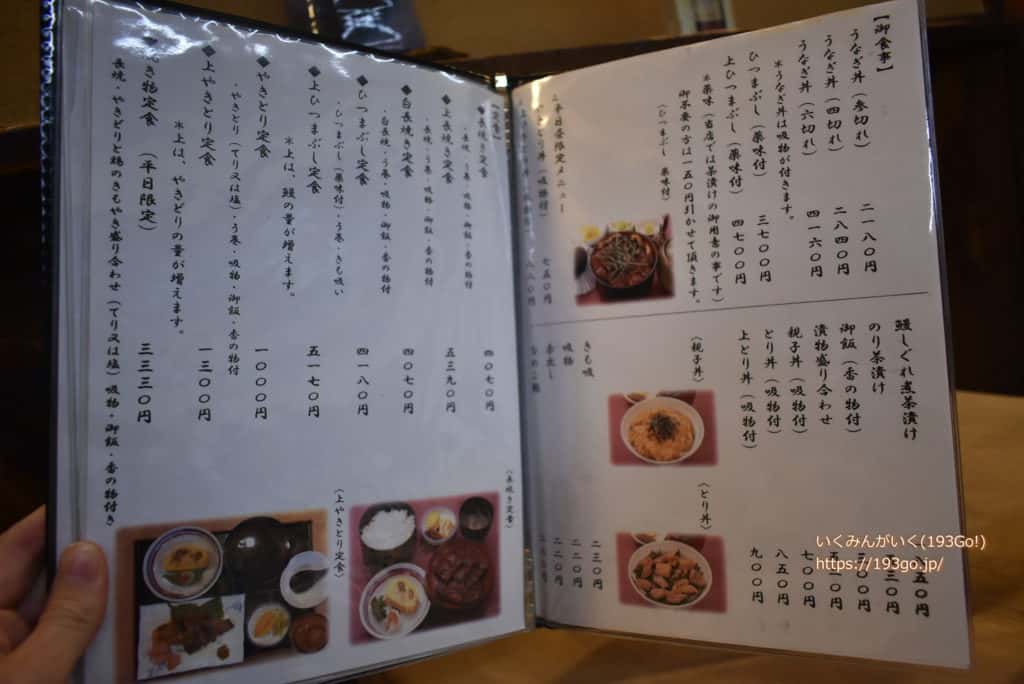 【御食事】
うなぎ丼（参切れ） 二一八〇円
うなぎ丼（四切れ） 二八四〇円
うなぎ丼（六切れ） 四一六〇円
＊うなぎ丼は吸物が付きます。
ひつまぶし（薬味付） 三七〇〇円
上ひつまぶし（薬味付） 四七〇〇円
＊薬味（当店では茶漬けの御用意の事です）
御不要の方は一五〇円引かせて頂きます。
（ひつまぶし 薬味付）
平日昼限定メニュー
やきとり丼（吸物付） 七五〇円
鰻しぐれ煮茶漬け
のり茶漬け
御飯（香の物付）
漬物盛り合わせ
親子丼（吸物付） 七〇〇円
とり丼（吸物付） 八五〇円
上とり丼（吸物付） 九〇〇円
（親子丼）
（とり丼）
きも吸 二三〇円
吸物
赤出し
◆長焼き定食 四〇七〇円
・長焼・う巻・吸物・御飯・香の物付
◆上長焼き定食 五三九〇円
・長焼・う巻・吸物・御飯・香の物付
◆白長焼き定食 四〇七〇円
・白長焼・う巻・吸物・御飯・香の物付
◆ひつまぶし定食 四一八〇円
・ひつまぶし（薬味付）・う巻・きも吸い
◆上ひつまぶし定食 五一七〇円
＊上は、鰻の量が増えます。
◆やきとり定食 一〇〇〇円
・やきとり（てり又は塩）・う巻・吸物・御飯・香の物付
◆上やきとり定食 一三〇〇円
＊上は、やきとりの量が増えます。
き物定食 （平日限定） 三三三〇円
長焼・やきとりと鶏のきもやき盛り合わせ（てり又は塩）吸物・御飯・香の物付き
（長焼き定食）
（上やきとり定食）
いくみんがいく(193Go!)
https://193go.jp/